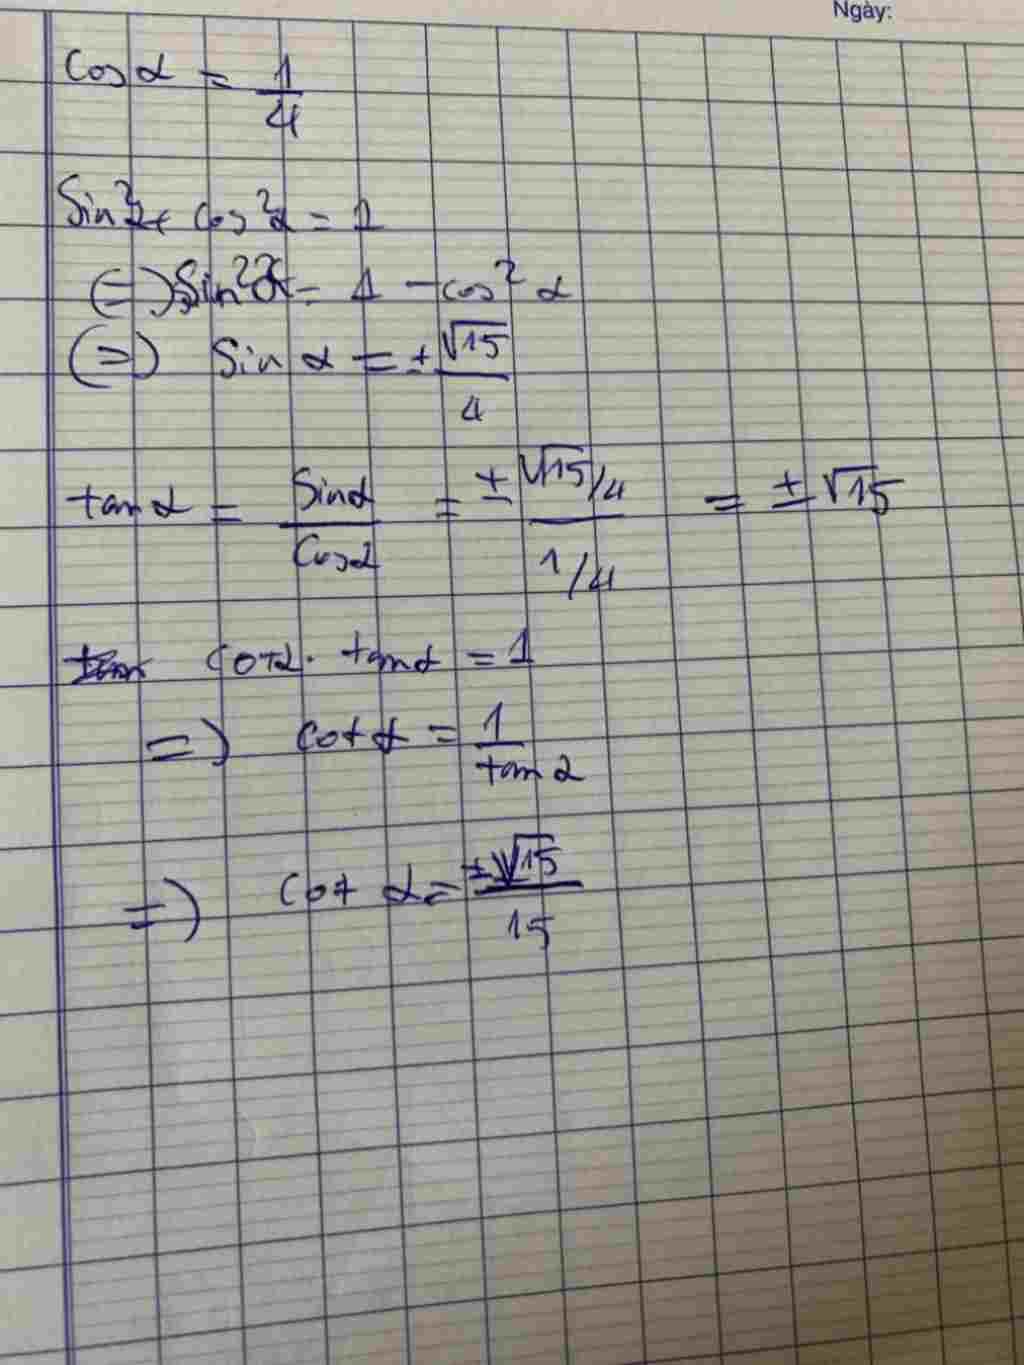 Ngày:
cos α = 1/4
Sin²α + cos²α = 1
(=) Sin²α = 1 - cos² α
(=) Sin α = ± √15/4
tan α = Sin α / Cos α = ± √15/4 / 1/4 = ± √15
cot α . tan α = 1
=) cot α = 1 / tan α
=) cot α = ±√15 / 15